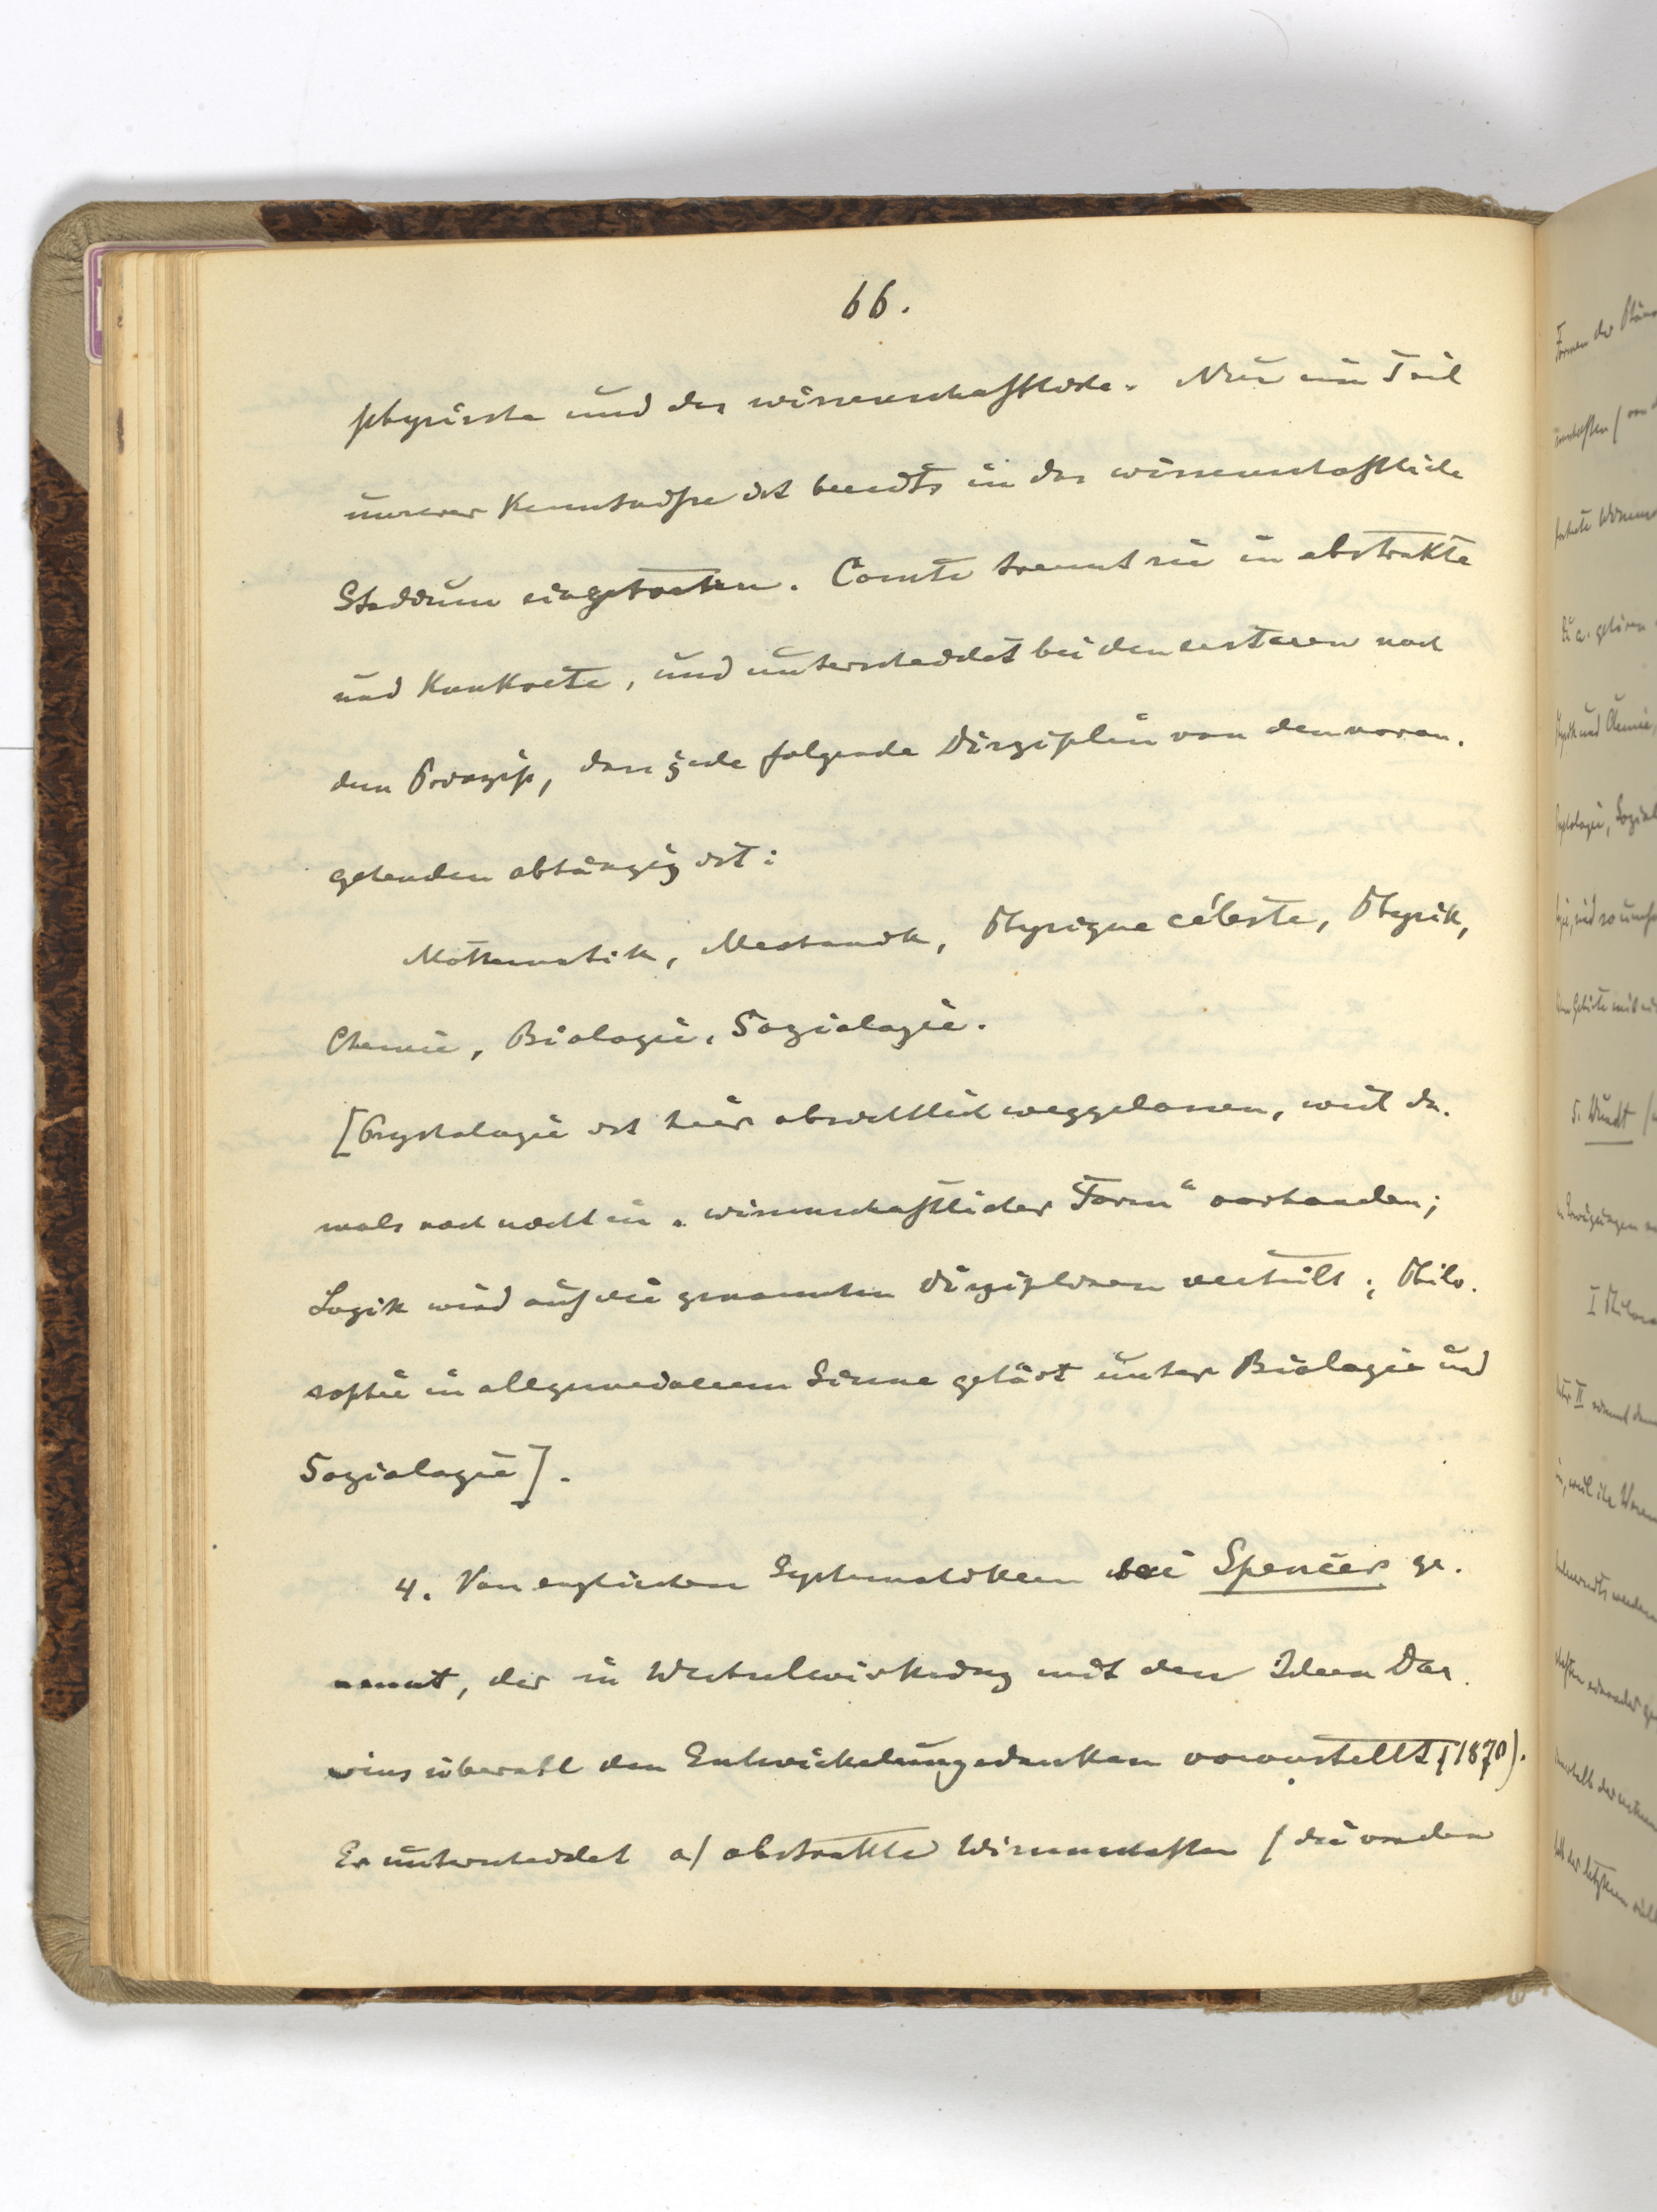 66.
physische und das wissenschaftliche. Nur ein Teil
unserer Kenntnisse ist bereits in das wissenschaftliche
Stadium eingetreten. Comte trennt sie in abstrakte
und konkrete, und unterscheidet bei den ersteren nach
dem Prinzip, dass jede folgende Disziplin von den voran-
gehenden abhängig ist:
Mathematik, Mechanik, Physique céleste, Physik,
Chemie, Biologie, Soziologie.
[Psychologie ist hier absichtlich weggelassen, weil da-
mals noch nicht in „wissenschaftlicher Form“ vorhanden;
Logik wird auf die genannten Disziplinen verteilt; Philo-
sophie in allgemeinerem Sinne gehört unter Biologie und
Soziologie].
4. Von englischen Systematikern sei Spencer ge-
nannt, der in Wechselwirkung mit den Ideen Dar-
wins überall den Entwickelungsgedanken voranstellt (1870).
Er unterscheidet a) abstrakte Wissenschaften (die von den
Formen der
5. Wundt